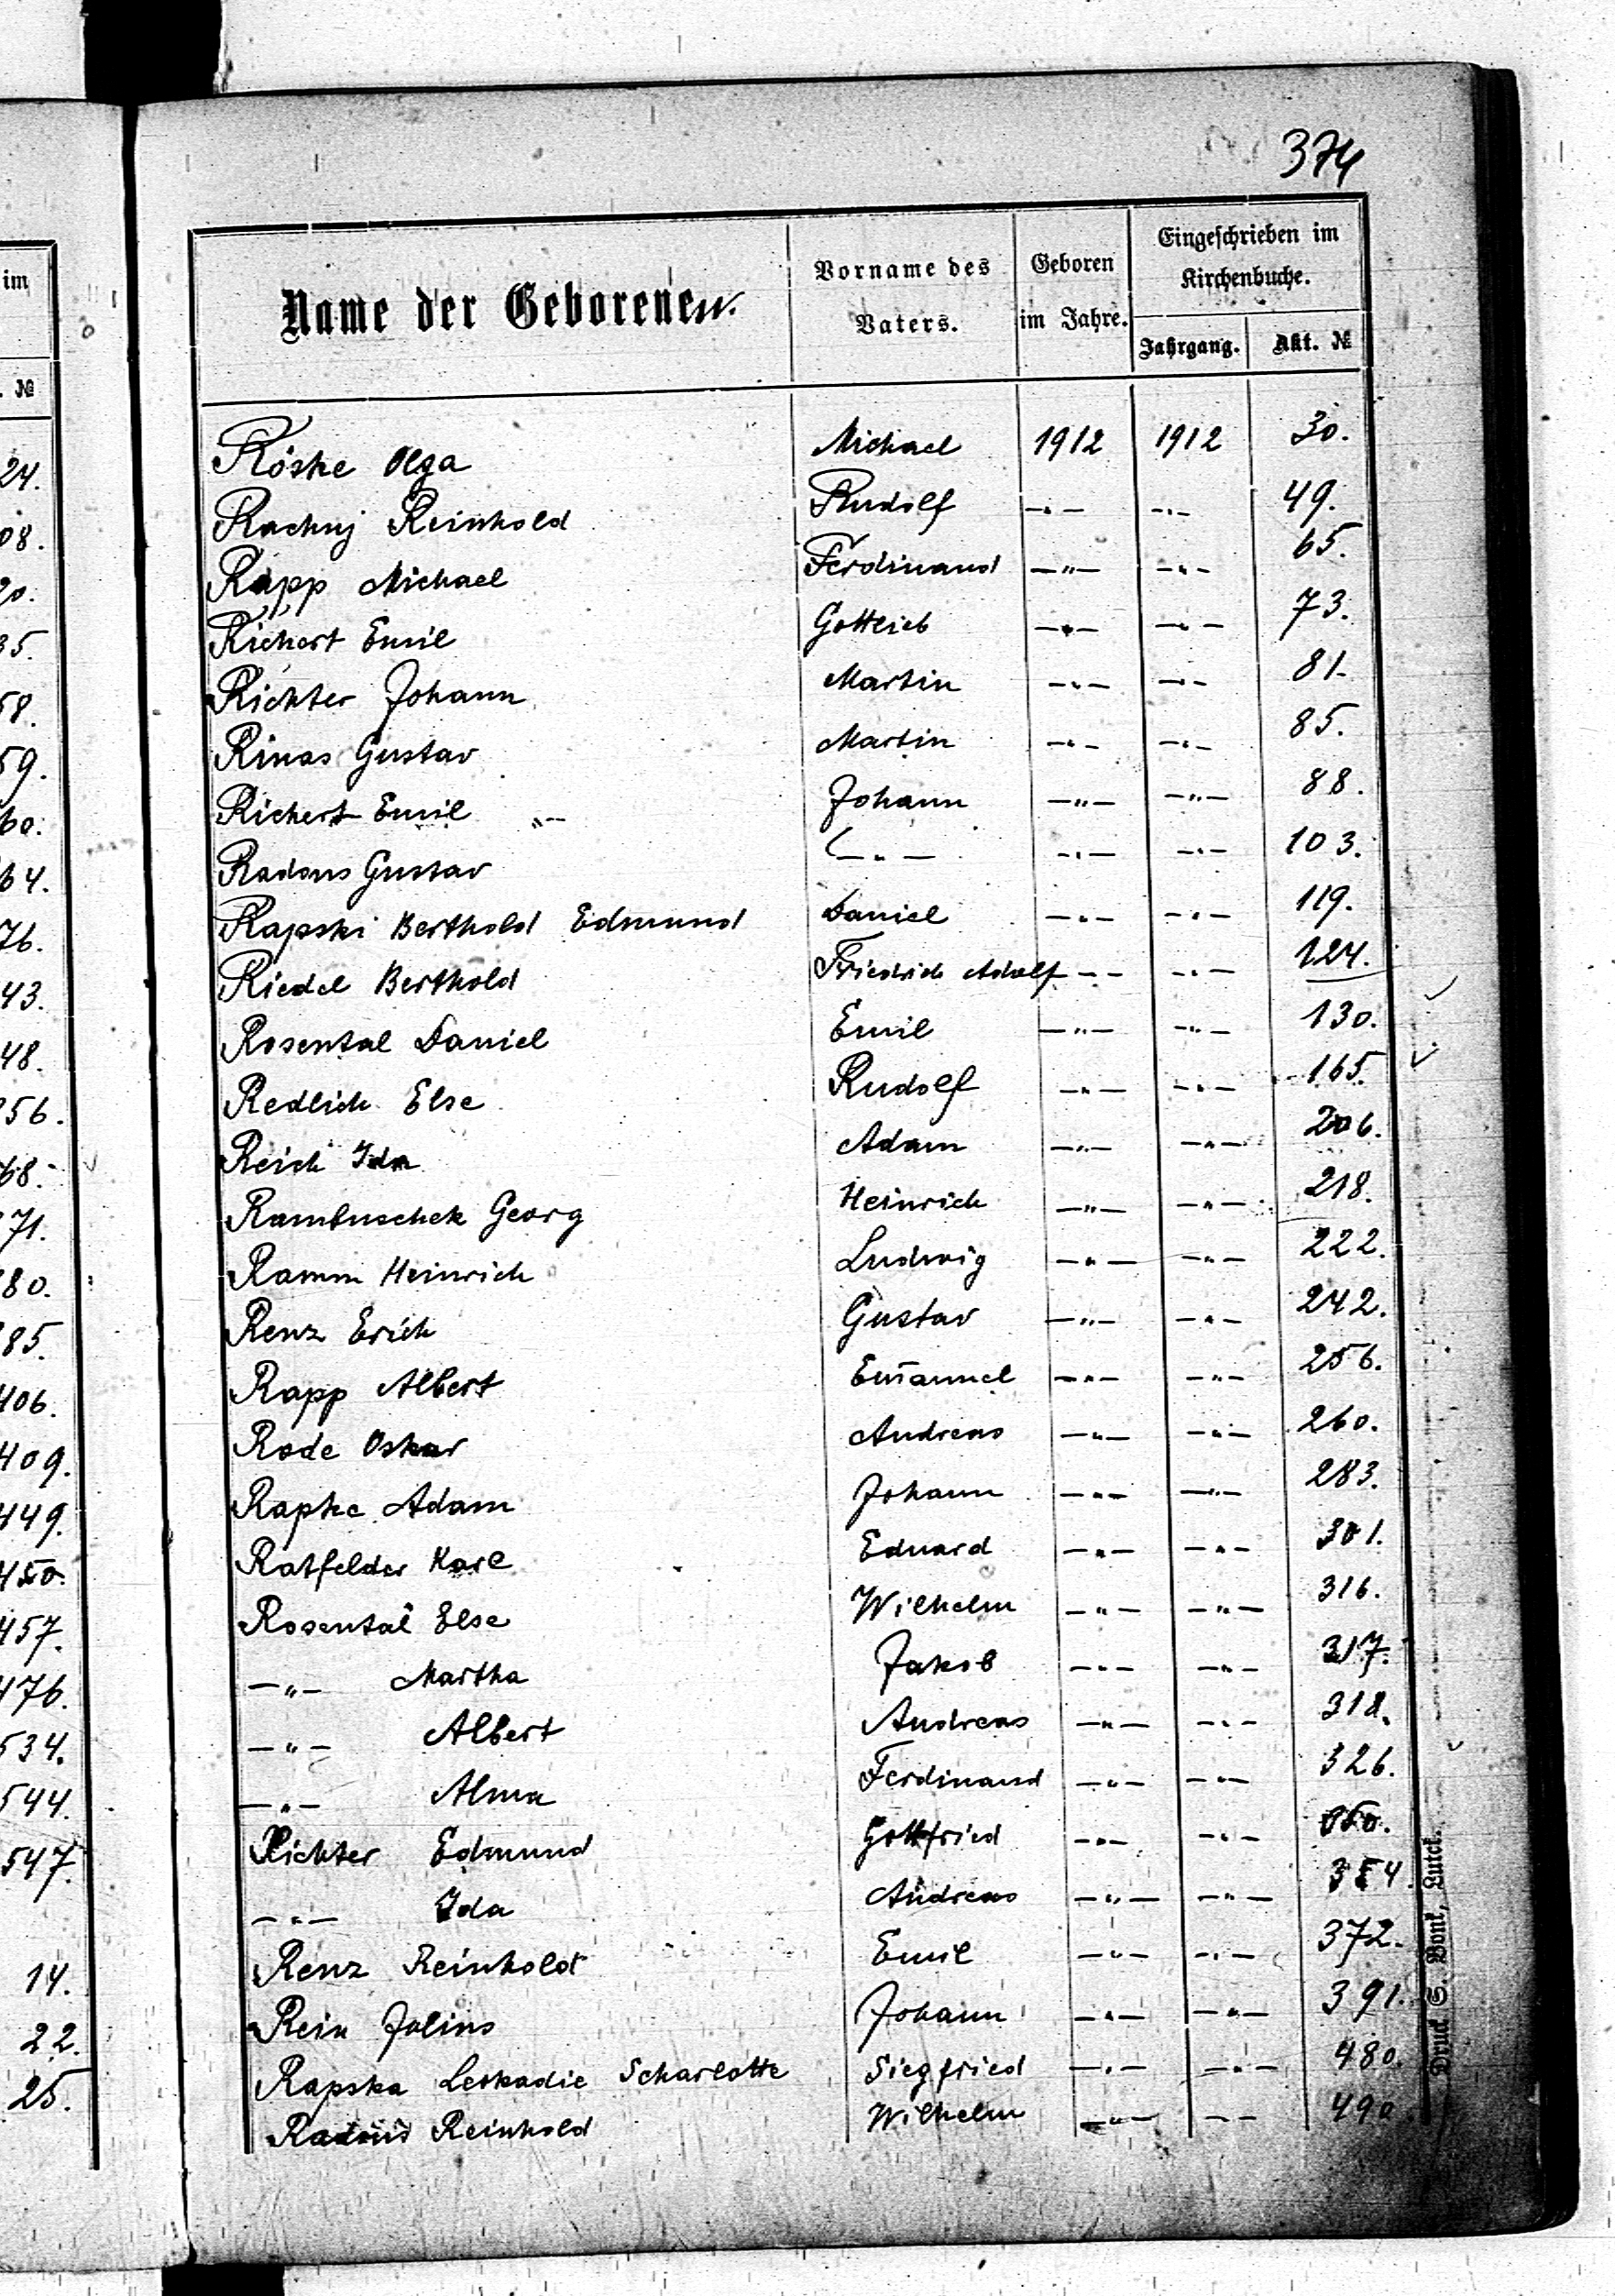 374
Name der Geborenen. Vorname des Vaters. Geboren im Jahre. Eingeschrieben im Kirchenbuche. Jahrgang. Akt. №
Röske Olga Michael 1912 1912 30.
Rachuj Reinhold Rudolf —„— —„— 49.
Rapp Michael Ferdinand —„— —„— 65.
Richert Emil Gottlieb —„— —„— 73.
Richter Johann Martin —„— —„— 81.
Rinas Gustav Martin —„— —„— 85.
Richert Emil „— Johann —„— —„— 88.
Radons Gustav —„— —„— —„— 103.
Rapski Berthold Edmund Daniel —„— —„— 119.
Riedel Berthold Friedrich Adolf —„— —„— 124.
Rosental Daniel Emil —„— —„— 130.
Redlich Else Rudolf —„— —„— 165.
Reich Ida Adam —„— —„— 206.
Rambuschek Georg Heinrich —„— —„— 218.
Ramm Heinrich Ludwig —„— —„— 222.
Renz Erich Gustav —„— —„— 242.
Rapp Albert Emanuel —„— —„— 256.
Rode Oskar Andreas —„— —„— 260.
Rapke Adam Johann —„— —„— 283.
Ratfelder Karl Eduard —„— —„— 301.
Rosental Else Wilhelm —„— —„— 316.
—„— Martha Jakob —„— —„— 317.
—„— Albert Andreas —„— —„— 318.
—„— Alma Ferdinand —„— —„— 326.
Richter Edmund Gottfried —„— —„—
—„— Ida Andreas —„— —„— 354.
Renz Reinhold Emil —„— —„— 372.
Rein Julius Johann —„— —„— 391.
Rapska Leokadie Scharlotte Siegfried —„— —„— 480.
Radons Reinhold Wilhelm —„— —„— 490
Druck S. Bonk, Lutck.
im
. №
24.
08.
20.
35.
58.
59.
60.
64.
76.
43.
48.
356.
68.
371.
380.
385.
406.
409.
449.
450.
457.
476.
534.
544.
547.
14.
22.
25.